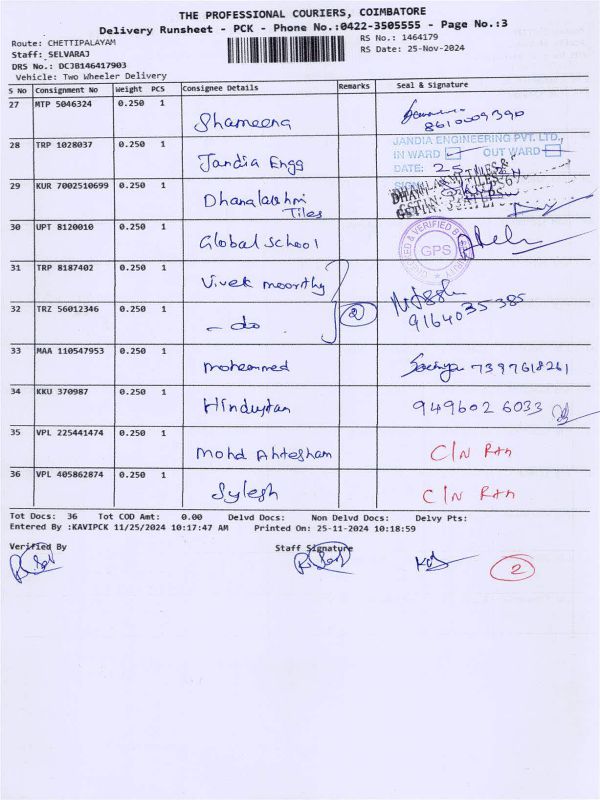 THE PROFESSIONAL COURIERS, COIMBATORE
Delivery Runsheet - PCK - Phone No.:0422-3505555 - Page No.:3
Route: CHETTIPALAYAM
RS No.: 1464179
Staff: SELVARAJ
RS Date: 25-Nov-2024
DRS No.: DCJB146417903
Vehicle: Two Wheeler Delivery
S No Consignment No Weight PCS Consignee Details Remarks Seal & Signature
27 MTP 5046324 0.250 1 Shameena 8610009390
28 TRP 1028037 0.250 1 Jandia Engg
JANDIA ENGINEERING PVT. LTD.,
IN WARD OUT WARD
DATE: 25
29 KUR 7002510699 0.250 1 Dhanalakhmi
Tiles
30 UPT 8120010 0.250 1 Global School GPS
31 TRP 8187402 0.250 1 Vivek moorthy
32 TRZ 56012346 0.250 1 - do . 2 9164035385
33 MAA 110547953 0.250 1 mohammed 7397618261
34 KKU 370987 0.250 1 Hindustan 9496026033
35 VPL 225441474 0.250 1 Mohd Ahtesham C/N
36 VPL 405862874 0.250 1 Sylesh C/N
Tot Docs: 36 Tot COD Amt: 0.00 Delvd Docs: Non Delvd Docs: Delvy Pts:
Entered By :KAVIPCK 11/25/2024 10:17:47 AM Printed On: 25-11-2024 10:18:59
Verified By Staff Signature
2